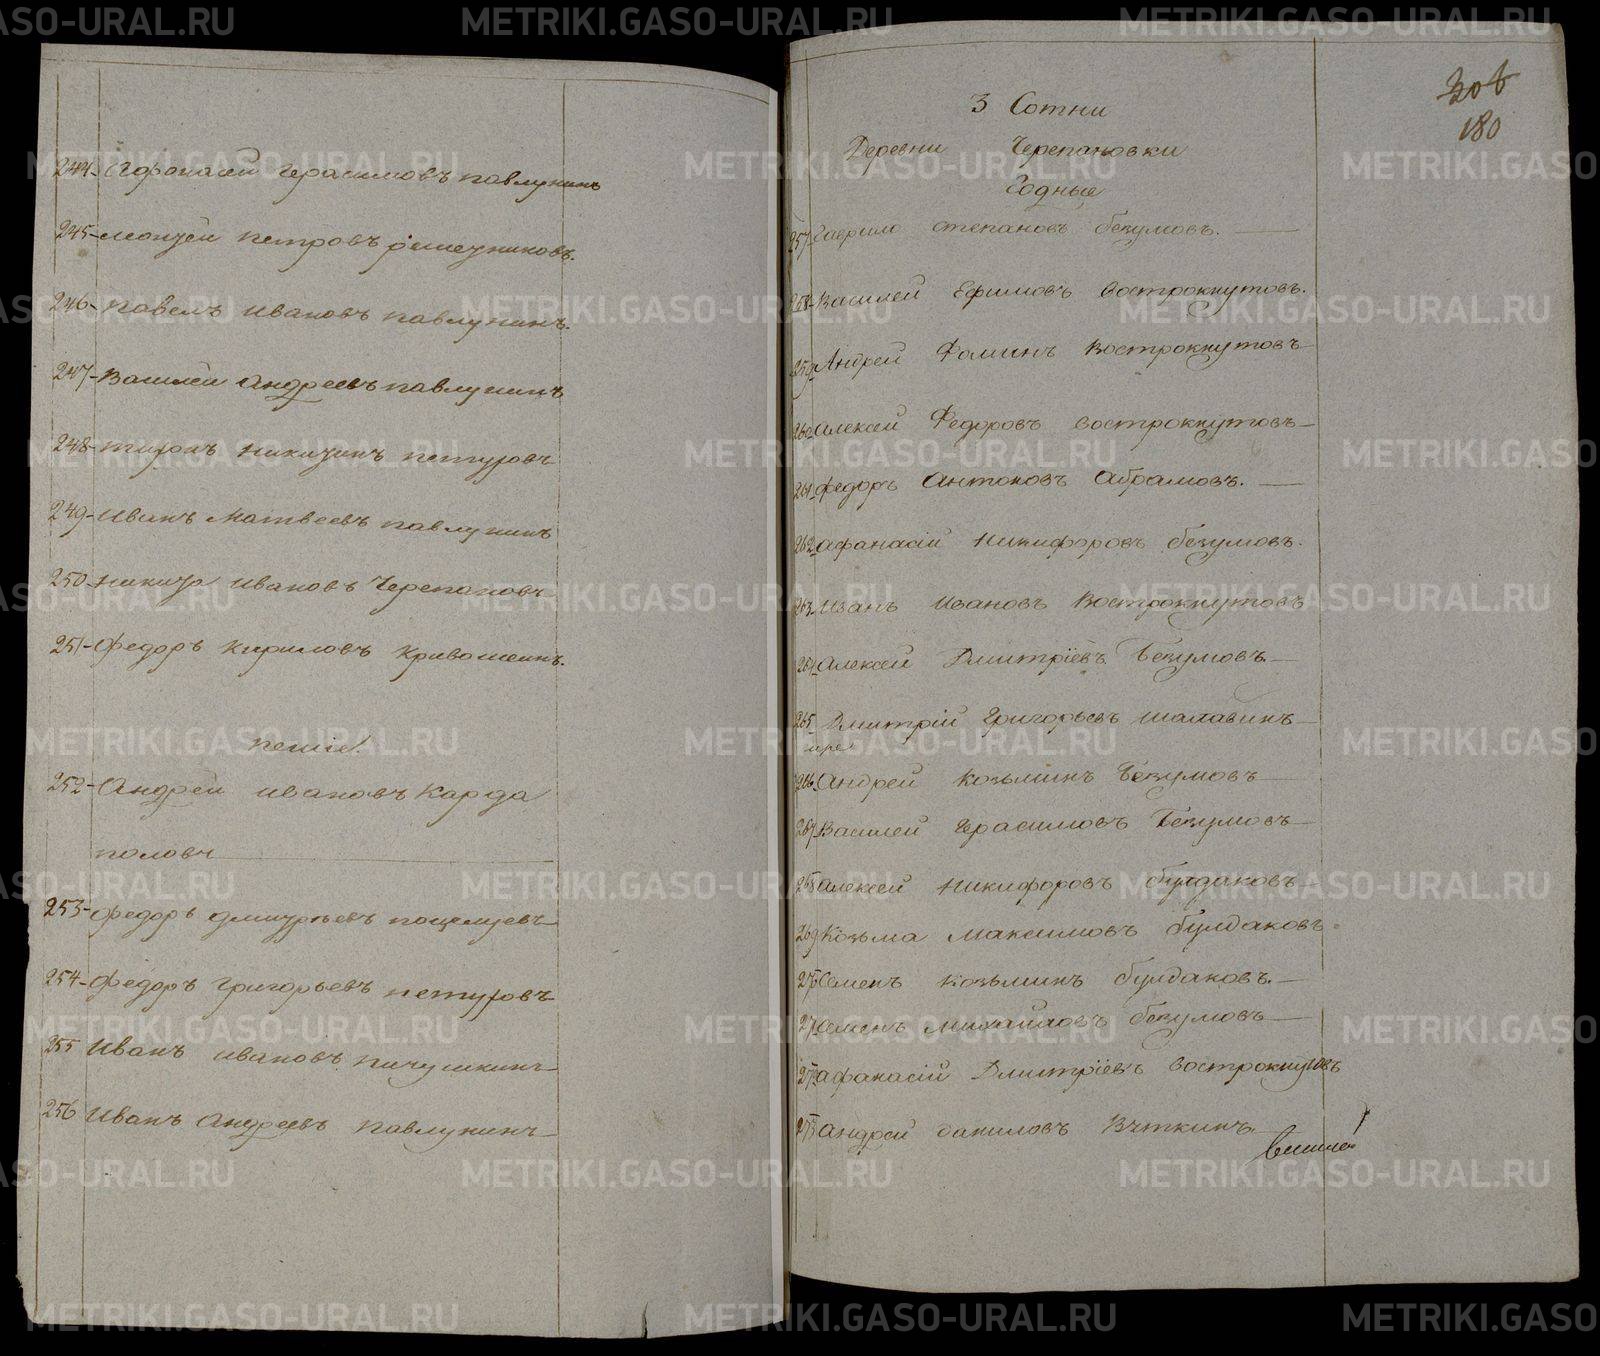 244. Афонасей Герасимовъ павлунинъ
245- моисеи петровъ решетниковъ.
246- павелъ ивановъ павлунинъ.
247- василеи андреевъ павлунинъ
248- тихонъ никитинъ петуховъ
249- иванъ матвеевъ павлунинъ
250- никита ивановъ Черепановъ
251- федоръ кириловъ кривошеинъ.
пешіе
252- Андреи ивановъ карда
половъ
253- федоръ дмитріевъ поцелуевъ
254- федоръ григорьевъ петуховъ
255 иванъ ивановъ пичушкинъ
256 иванъ андреевъ павлунинъ
306
180
3 Сотни
Деревни Черепановки
Годные
257 Гаврило степановъ безумовъ.
258- Василей Ефимовъ вострокнутовъ.
259 Андрей Фоминъ вострокнутовъ
260 алексей Федоровъ вострокнутовъ
261 федоръ Антоновъ Абрамовъ.
262 афанасій никифоровъ безумовъ.
263 иванъ ивановъ вострокнутовъ
264 алексей Дмитріевъ Безумовъ
265 Дмитрій григорьевъ шалавинъ
266 андрей козьминъ безумовъ
267 Василей герасимовъ безумовъ
268 алексей никифоровъ булдаковъ
269 козьма максимовъ булдаковъ
270 семенъ козьминъ булдаковъ.
271 семенъ михайловъ безумовъ
272 афанасій Дмитріевъ вострокнутовъ
273 андрей даниловъ Вяткинъ
METRIKI.GASO-URAL.RU